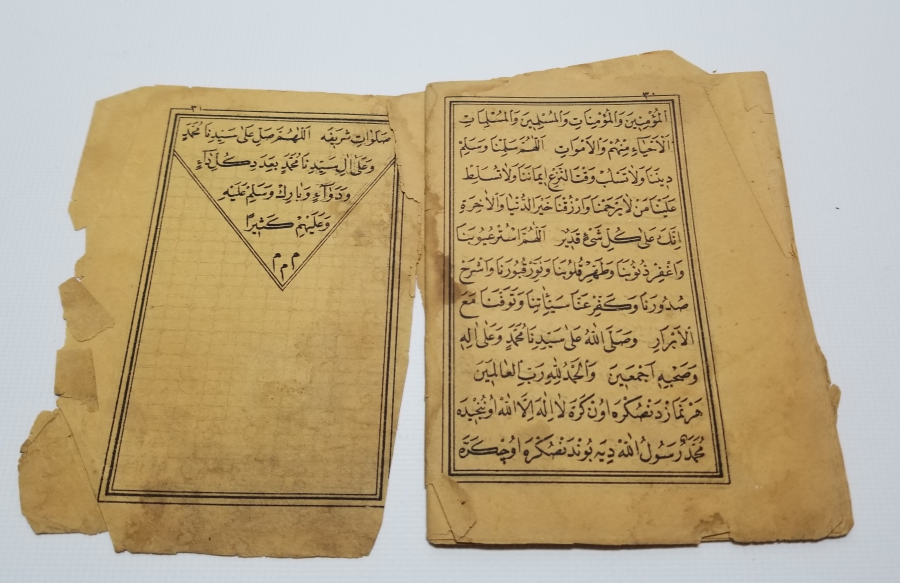 ٣٠
اَلْمُؤْمِنِينَ وَالْمُؤْمِنَاتِ وَالْمُسْلِمِينَ وَالْمُسْلِمَاتِ
اَلْاَحْيَاءِ مِنْهُمْ وَالْاَمْوَاتِ اَللّٰهُمَّ سَلِّمْنَا وَسَلِّمْ
دِينَنَا وَلَا تَسْلُبْ وَقْتَ النَّزْعِ اِيمَانَنَا وَلَا تُسَلِّطْ
عَلَيْنَا مَنْ لَا يَرْحَمُنَا وَارْزُقْنَا خَيْرَ الدُّنْيَا وَالْاٰخِرَةِ
اِنَّكَ عَلٰى كُلِّ شَىْءٍ قَدِيرٌ اَللّٰهُمَّ اسْتُرْ عُيُوبَنَا
وَاغْفِرْ ذُنُوبَنَا وَطَهِّرْ قُلُوبَنَا وَنَوِّرْ قُبُورَنَا وَاشْرَحْ
صُدُورَنَا وَكَفِّرْ عَنَّا سَيِّئَاتِنَا وَتَوَفَّنَا مَعَ
الْاَبْرَارِ وَصَلَّى اللّٰهُ عَلٰى سَيِّدِنَا مُحَمَّدٍ وَعَلٰى اٰلِهٖ
وَصَحْبِهٖ اَجْمَعِينَ وَالْحَمْدُ لِلّٰهِ رَبِّ الْعَالَمِينَ
هَرْ نَمَازْدَنْ صُكْرَه اُونْ كَرَّه لَا اِلٰهَ اِلَّا اللّٰهُ اُونْجِيدَه
مُحَمَّدٌ رَسُولُ اللّٰهْ دِيَه بُونْدَنْ صُكْرَه اُوچْ كَرَّه
٣١
صَلَوَاتِ شَرِيفَه اَللّٰهُمَّ صَلِّ عَلٰى سَيِّدِنَا مُحَمَّدٍ
وَعَلٰى اٰلِ سَيِّدِنَا مُحَمَّدٍ بِعَدَدِ كُلِّ دَاءٍ
وَدَوَاءٍ وَبَارِكْ وَسَلِّمْ عَلَيْهِ
وَعَلَيْهِمْ كَثِيرًا
م م
م